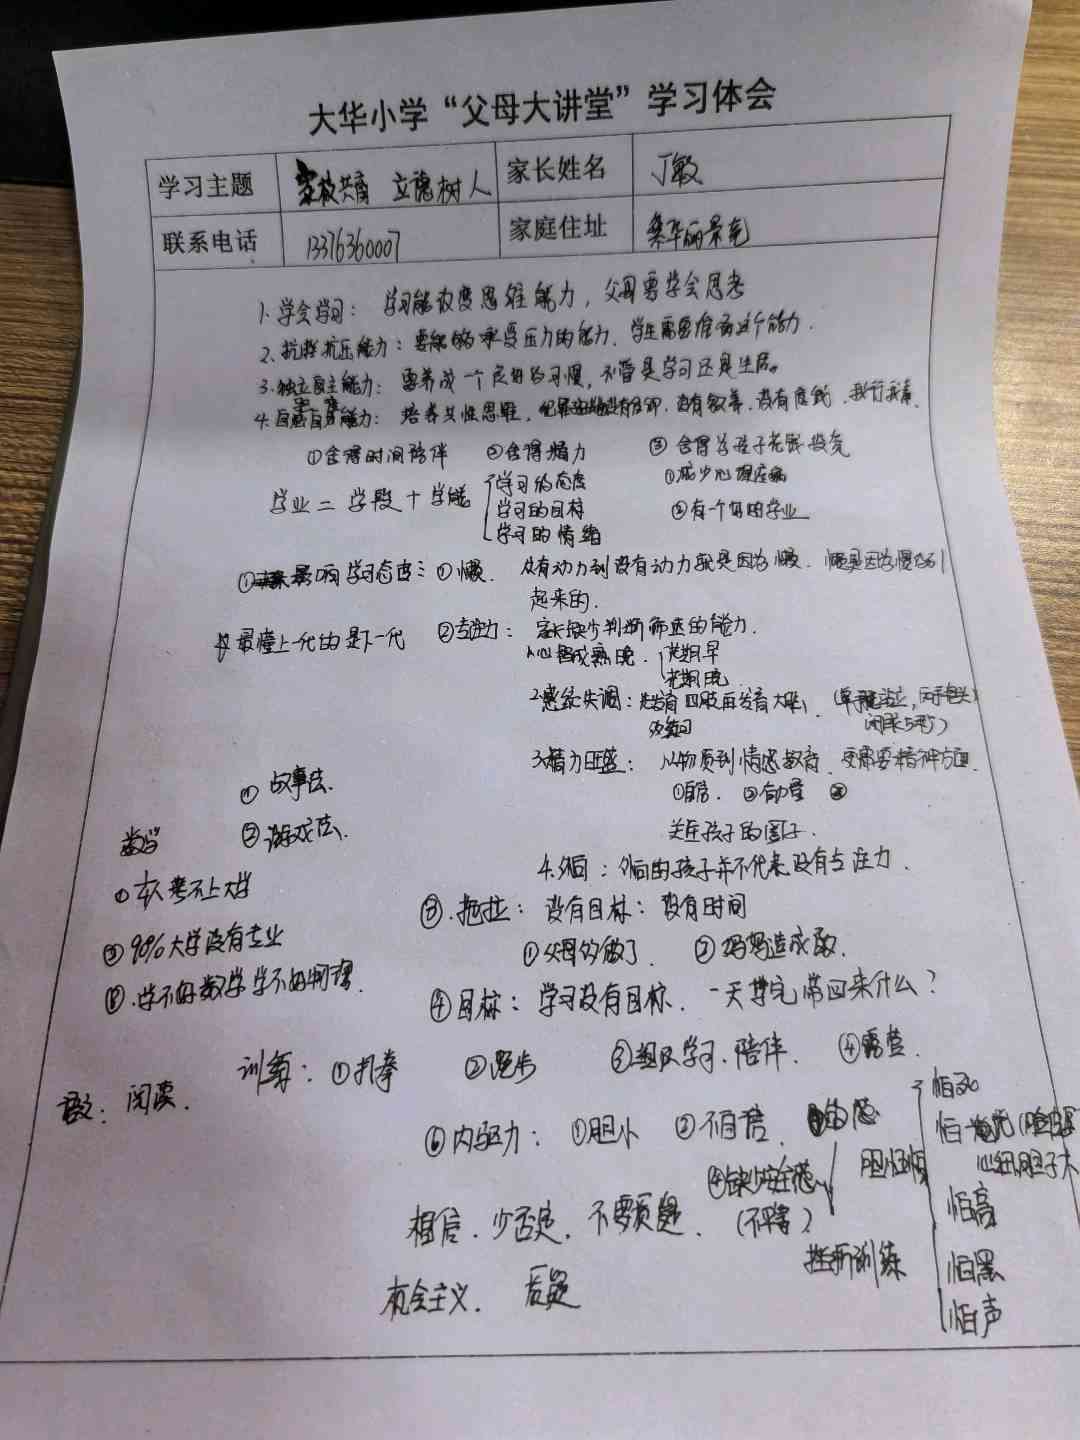 大华小学“父母大讲堂”学习体会
学习主题 家校共育 立德树人 家长姓名 丁敏
联系电话 13376360007 家庭住址 集华丽景苑
1.学会学习： 学习能改变思维能力，父母要学会思考
2.抗挫抗压能力：要能够承受压力的能力，学生需要借有这个能力.
3.独立自主能力： 要养成一个良好的习惯，不管是学习还是生活。
4.自 自 能力： 培养共性思维， 没有叙事，没有底线，我行我素.
①舍得时间陪伴 ②舍得精力 ③舍得为孩子花钱投资
学业＝学段＋学能 学习的态度 ①减少心理疾病
学习的目标 ②有个好的学业
学习的情绪
① 影响学习态度： ①懒. 从有动力到没有动力就是因为懒. 懒是因为惯
起来的.
最懂上一代的是下一代 ②专注力： 家长缺少判断 的能力.
1.心智成熟晚. 花期早
花期晚
2.感统失调：先发育四肢再发育大脑.
3.精力旺盛： 从物质到情感教育. 更需要精神方面.
①自信. ②能量 ③
①故事法. 关注孩子的圈子.
数学 ②游戏法.
4.外向：外向的孩子并不代表没有专注力.
①本人考不上大学
③.拖拉： 没有目标：没有时间
②90%大学没有专业
①父母的做了. ②妈妈造成的.
③.学不好数学学不好物理.
④目标： 学习没有目标. 一天学完带回来什么？
训练：①打拳 ②跑步 ③组队学习.陪伴. ④露营.
语文：阅读.
⑥内驱力： ①胆小 ②不自信. 怕死
胆小恐惧 怕
④缺少安全感 心细胆子大
相信. 少否定. 不要质疑. 怕高
挫折训练 怕黑
机会主义. 质疑 怕声